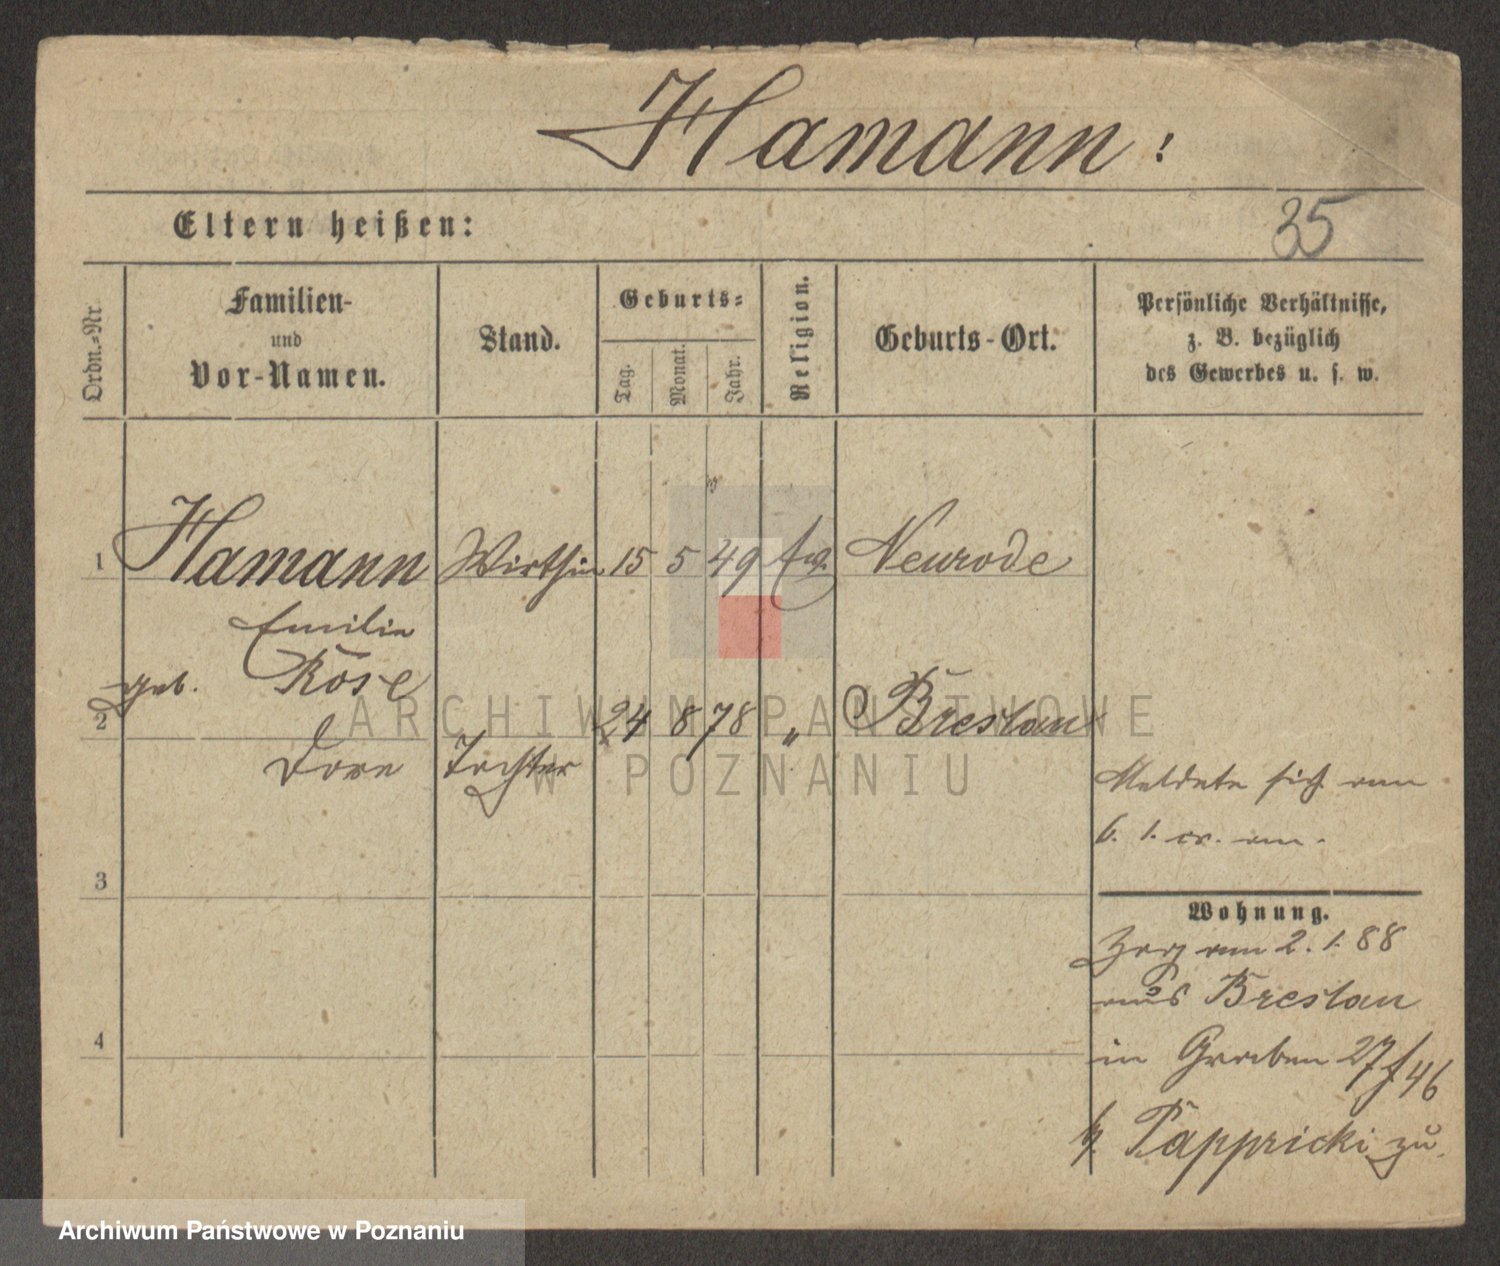 Hamann:
Eltern heißen:
35
Ordn.-Nr.
Familien-
und
Vor-Namen.
Stand.
Geburts-
Tag.
Monat.
Jahr.
Religion.
Geburts-Ort.
Persönliche Verhältnisse,
z. B. bezüglich
des Gewerbes u. s. w.
1 Hamann Wirthin 15 5 49 Neurode
Emilie
geb. Röse
2 24 8 78 " Breslau
Dore Tochter
Meldete sich am
6. 1. cr. an.
3
Wohnung.
Zog am 2. 1. 88
aus Breslau
in Graben 27/46
b. Pappricki zu.
4
ARCHIWUM PAŃSTWOWE
W POZNANIU
Archiwum Państwowe w Poznaniu